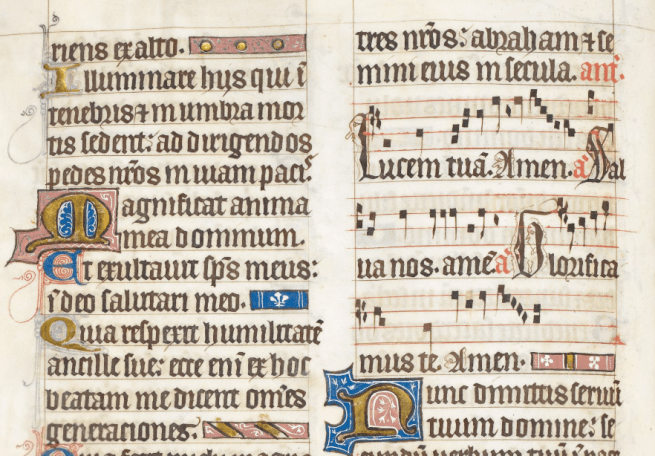 riens ex alto.
Illuminare hys qui ī
tenebris ⁊ in umbra mor
tis sedent: ad dirigendos
pedes nr̄os in uiam paciˢ
Magnificat anima
mea dominum.
Et exultauit sp̄s meus:
ī deo salutari meo.
Quia respexit humilitatē
ancille sue: ecce eni᷎ ex hoc
beatam me dicent om̄es
generaciones.
tres nr̄os: abraham ⁊ se
mini eius in secula. ant.
Lucem tuā. Amen. a Sal
ua nos. amē a Glorifica
mus te. Amen.
Nunc dimittis seruū
tuum domine: se
cundū uerbum tuū